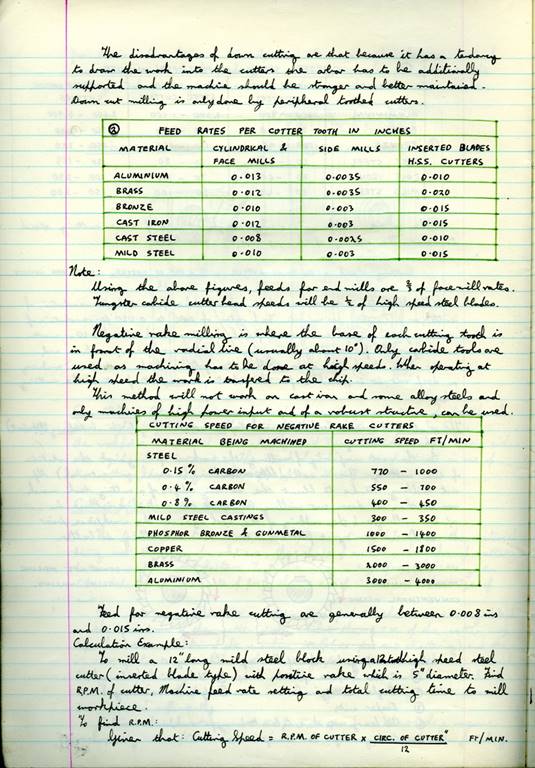 The disadvantages of down cutting are that because it has a tendency
to draw the work into the cutters the arbor has to be additionally
supported and the machine should be stronger and better maintained.
Down cut milling is only done by peripheral toothed cutters.
② FEED RATES PER COTTER TOOTH IN INCHES
MATERIAL CYLINDRICAL & FACE MILLS SIDE MILLS INSERTED BLADES H.S.S. CUTTERS
ALUMINIUM 0.013 0.0035 0.010
BRASS 0.012 0.0035 0.020
BRONZE 0.010 0.003 0.015
CAST IRON 0.012 0.003 0.015
CAST STEEL 0.008 0.0025 0.010
MILD STEEL 0.010 0.003 0.015
Note:
Using the above figures, feeds for end mills are of face mill rates.
Tungsten cabide cutter head speeds will be of high speed steel blades.
Negative rake milling is where the base of each cutting tooth is
in front of the radial line (usually about 10°). Only carbide tools are
used as machining has to be done at high speeds. When operating at
high speed the work is transfered to the chip.
This method will not work on cast iron and some alloy steels and
only machines of high power input and of a robust structure, can be used.
CUTTING SPEED FOR NEGATIVE RAKE CUTTERS
MATERIAL BEING MACHINED CUTTING SPEED FT/MIN
STEEL
0.15% CARBON 770 - 1000
0.4% CARBON 550 - 700
0.8% CARBON 400 - 450
MILD STEEL CASTINGS 300 - 350
PHOSPHOR BRONZE & GUNMETAL 1000 - 1400
COPPER 1500 - 1800
BRASS 2000 - 3000
ALUMINIUM 3000 - 4000
Feed for negative rake cutting are generally between 0.008 ins
and 0.015 ins.
Calculation Example:
To mill a 12" long mild steel block using a high speed steel
cutter (inserted blade type) with positive rake which is 5" diameter. Find
R.P.M. of cutter, Machine feed rate setting and total cutting time to mill
workpiece.
To find R.P.M.:
Given that: Cutting Speed = R.P.M. OF CUTTER x CIRC. OF CUTTER" FT/MIN.
12